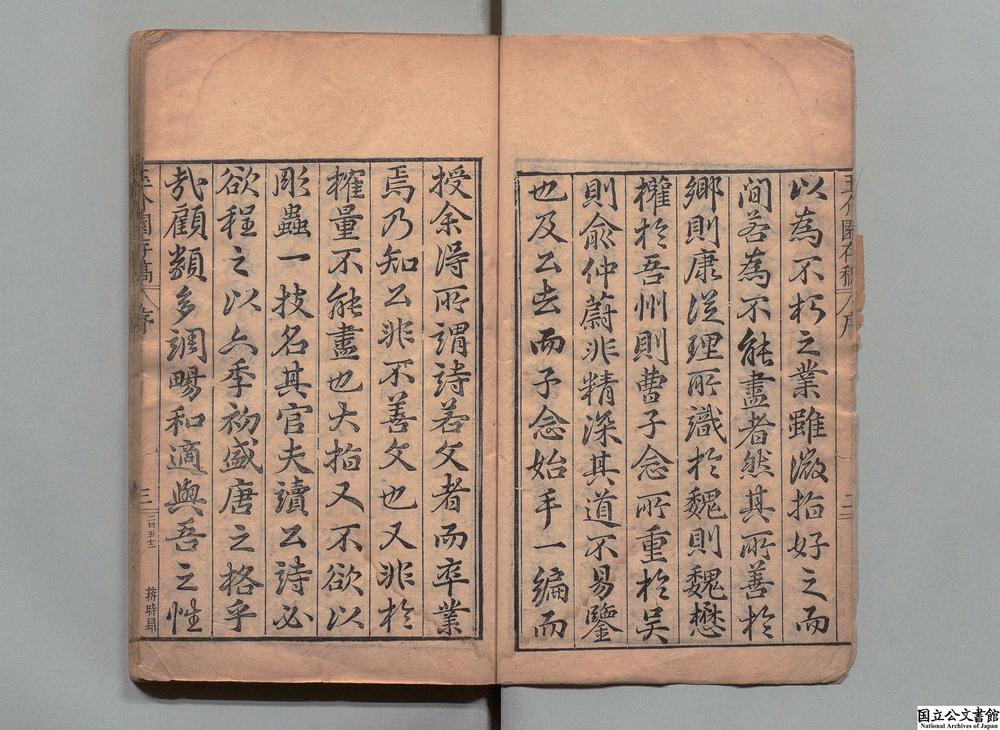 以為不朽之業雖微指好之而
間若為不能盡者然其所善於
鄉則康從理所識於魏則魏懋
權於吾州則曹子念所重於吳
則俞仲蔚非精深其道不易鑒
也及公去而子念始手一編而
授余得所謂詩若文者而卒業
焉乃知公非不善文也又非於
權量不能盡也大指又不欲以
彫蟲一技名其官夫讀公詩必
欲程之以六季初盛唐之格乎
哉顧類多調暢和適與吾之性
序
三
蔣時
国立公文書館
National Archives of Japan